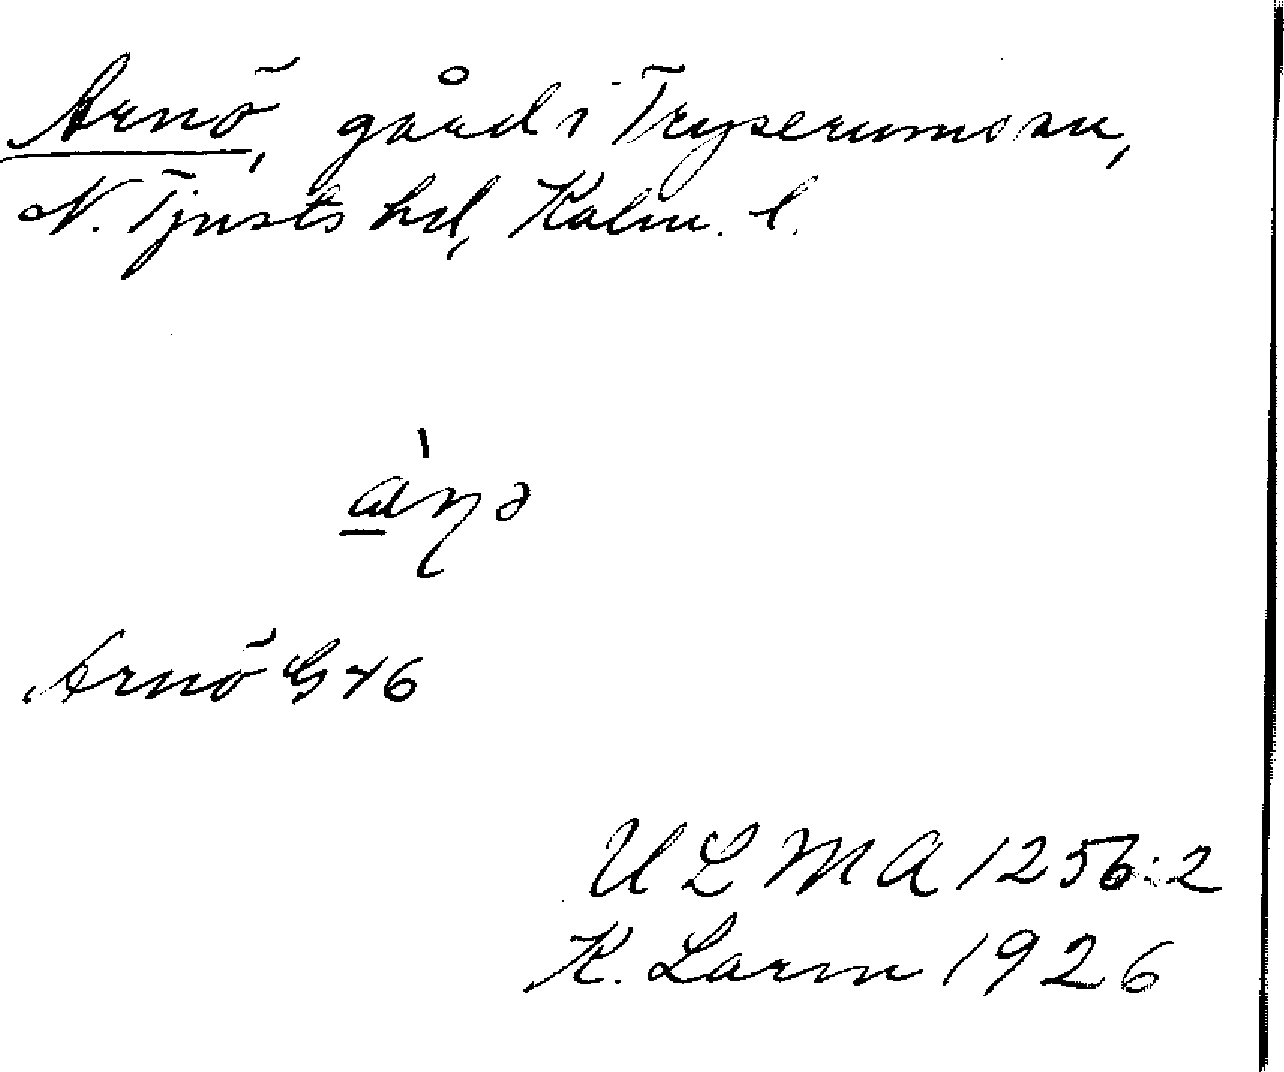 Arnö, gård i Tryserums sn,
N. Tjusts hd, Kalm. l.
Arnö G 46
ULMA 1256:2
K. Larm 1926